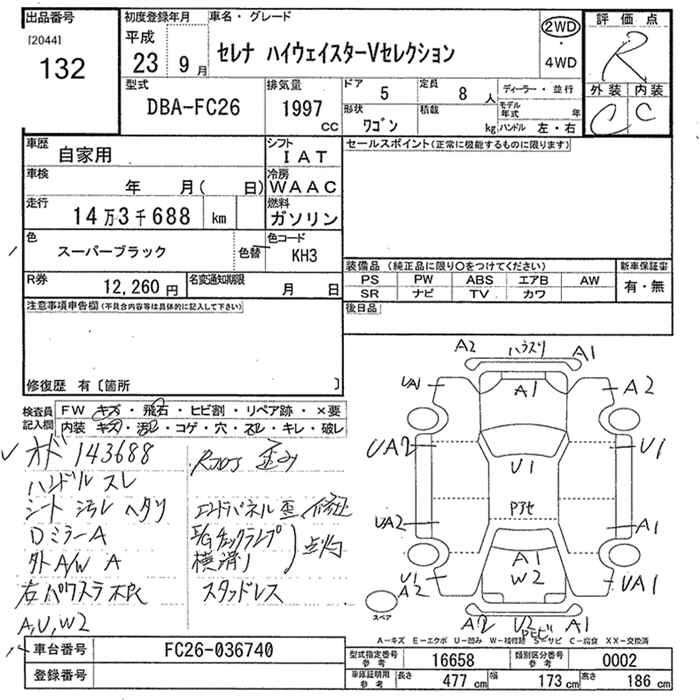 出品番号
[2044]
132
初度登録年月
平成
23 9 月
車名・グレード
セレナ ハイウェイスターVセレクション
2WD
・
4WD
評価点
R
外装 内装
C C
型式
DBA-FC26
排気量
1997
cc
ドア 5
定員 8 人
形状 ワゴン
積載 kg
ディーラー・並行
モデル年式 年
ハンドル 左・右
車歴 自家用
シフト IAT
車検 年 月( 日)
冷房 WAAC
走行 14万3千688 km
燃料 ガソリン
色 スーパーブラック 色替
色コード KH3
R券 12,260 円
名変通知期限 月 日
セールスポイント(正常に機能するものに限ります)
装備品 (純正品に限り○をつけてください)
新車保証書
PS PW ABS エアB AW
SR ナビ TV カワ
有・無
後日品
注意事項申告欄(不具合内容等は具体的に記入して下さい)
修復歴 有〔箇所 〕
検査員記入欄
FW キズ・飛石・ヒビ割・リペア跡・×要
内装 キズ・汚レ・コゲ・穴・スレ・キレ・破レ
オド 143688
ハンドル スレ
シート 汚レ ヘタリ
DミラーA
外A/W A
右パワスラ不良
A,U,W2
歪み
エンドパネル 歪 修正
横滑リ
スタッドレス
A2 A1
UA1 A1 A2
UA2 U1 U1
UA2 A1
A1
W2
U1 UA1
A2
スペア
A2 U2 A1
A-キズ E-エクボ U-凹み W-補修跡 S-サビ C-腐食 XX-交換済
車台番号 FC26-036740
登録番号
型式指定番号 参考 16658
類別区分番号 参考 0002
車庫証明用 参考 長さ 477 cm 幅 173 cm 高さ 186 cm